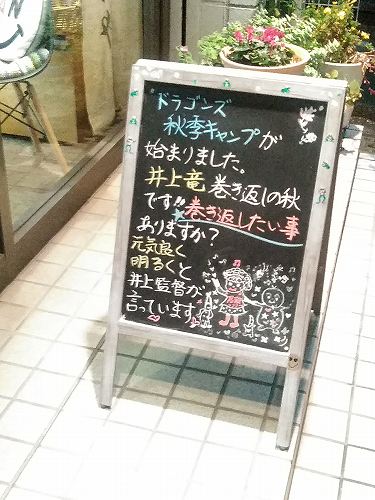 ドラゴンズ
秋季キャンプが
始まりました。
井上竜 巻き返しの秋
です‼巻き返したい事
ありますか?
元気良く
明るくと
井上監督が
言っています。